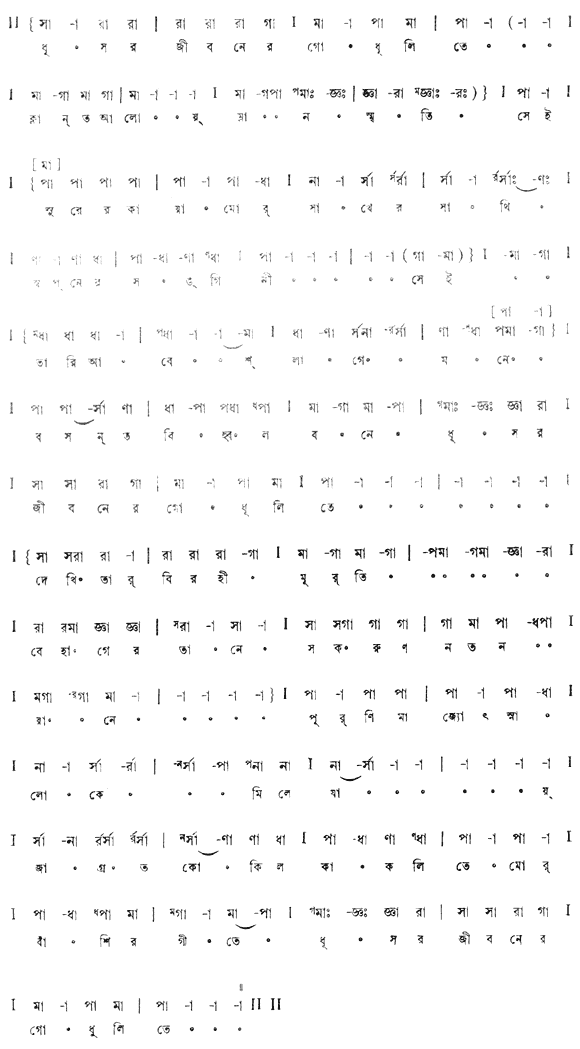 II {সা -া রা রা | রা রা রা গা I মা -া পা মা | পা -া (-া -া I
ধূ ॰ স র জী ব নে র গো ॰ ধূ লি তে ॰ ॰ ॰
I মা -গা মা গা | মা -া -া -া I মা -গপা পমাঃ -জ্ঞঃ | জ্ঞা -রা মজ্ঞাঃ -রঃ)} I পা -া I
ক্লা ন্ ত আ লো ॰ য়্ ম্লা ॰॰ ন ॰ স্মৃ ॰ তি ॰ সে ই
[ মা ]
I {পা পা পা পা | পা -া পা -ধা I না -া র্সা র্সর্রা | র্সা -া র্রর্সাঃ -ণঃ I
সু রে র কা য়া ॰ মো র্ সা ॰ থে র সা ॰ থি ॰
I ণা -া ণা ধা | পা -ধা -ণা ণধা I পা -া -া -া | -া -া (গা -মা)} I -মা -গা I
স্ব প্ নে র স ॰ ঙ্ গি নী ॰ ॰ ॰ ॰ ॰ সে ই ॰ ॰
[ পা -া ]
I {ণধা ধা ধা -া | পধা -া -া -মা I ধা -ণা র্সনা -র্রর্সা | ণা -ণধা পমা -গা} I
তা রি আ ॰ বে ॰ ॰ শ্ লা ॰ গে॰ ॰ ম ॰ নে॰ ॰
I পা পা -র্সা ণা | ধা -পা পধা ধপা I মা -গা মা -পা | পমাঃ -জ্ঞঃ জ্ঞা রা I
ব স ন্ ত বি ॰ হ্ব॰ ল ব ॰ নে ॰ ধূ ॰ স র
I সা সা রা গা | মা -া পা মা I পা -া -া -া | -া -া -া -া I
জী ব নে র গো ॰ ধূ লি তে ॰ ॰ ॰ ॰ ॰ ॰ ॰
I {সা সরা রা -া | রা রা রা -গা I মা -গা মা -গা | -পমা -গমা -জ্ঞা -রা I
দে খি॰ তা র্ বি র হী ॰ মূ র্ তি ॰ ॰॰ ॰॰ ॰ ॰
I রা রমা জ্ঞা জ্ঞা | সরা -া সা -া I সা সগা গা গা | গা মা পা -ধপা I
বে হা॰ গে র তা ॰ নে ॰ স ক॰ রু ণ ন ত ন ॰॰
I মগা -রগা মা -া | -া -া -া -া} I পা -া পা পা | পা -া পা -ধা I
য়া॰ ॰ নে ॰ ॰ ॰ ॰ ॰ পূ র্ ণি মা জ্যো ৎ স্না ॰
I না -া র্সা -র্রা | -র্রর্সা -পা পনা না I না -র্সা -া -া | -া -া -া -া I
লো ॰ কে ॰ ॰ ॰ মি লে যা ॰ ॰ ॰ ॰ ॰ ॰ য়্
I র্সা -না র্রর্সা র্রর্সা | র্রর্সা -ণা ণা ধা I পা -ধা ণা ণধা | পা -া পা -া I
জা ॰ গ্র॰ ত কো ॰ কি ল কা ॰ ক লি তে ॰ মো র্
I পা -ধা ধপা মা | মগা -া মা -পা I পমাঃ -জ্ঞঃ জ্ঞা রা | সা সা রা গা I
বাঁ ॰ শি র গী ॰ তে ॰ ধূ ॰ স র জী ব নে র
I মা -া পা মা | পা -া -া -া II II
গো ॰ ধূ লি তে ॰ ॰ ॰